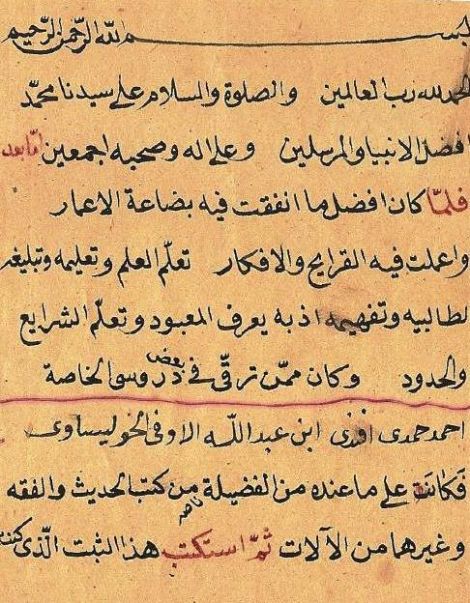 بسم الله الرحمن الرحيم
الحمد لله رب العالمين والصلوة والسلام على سيدنا محمد
افضل الانبيا والمرسلين وعلى اله وصحبه اجمعين امّا بعد
فلمّا كان افضل ما انفقت فيه بضاعة الاعمار
واعملت فيه القرايح والافكار تعلّم العلم وتعليمه وتبليغه
لطالبيه وتفهيمه اذ به يعرف المعبود وتعلّم الشرايع
والحدود وكان ممّن ترقّى في بعض دروسى الخاصة
احمد حمدى افندى ابن عبد اللّه الاوفى
على ما عنده من الفضيلة من كتب الحديث والفقه
وغيرهما من الآلات ثمّ استكتب هذا الثبت الّذى